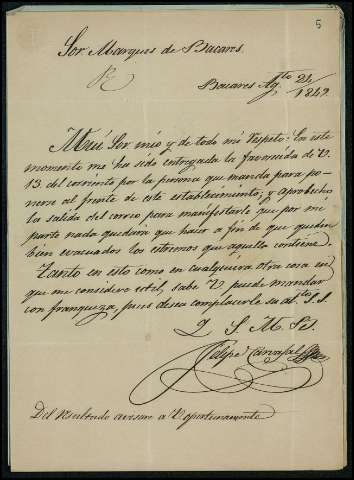 5
Sor Marques de Bacares.
Bacares Agto 21/1849
Muï Sor mio y de todo mi respeto: En este
momento me ha sido entregada la favorecida de V.
13 del corriente por la persona que manda para po-
nerse al frente de este establecimiento; y aprobecho
la salida del correo para manifestarle que por mi
parte nada quedará que hacer a fin de que queden
bien evacuados los estremos que aquella contiene.
Tanto en esto como en cualquiera otra cosa en
que me considere util, sabe V. puede mandar
con franqueza, pues desea complacerle su atto S. S.
Q S M B.
Felipe Carvajal
Del resultado avisare a V oportunamente